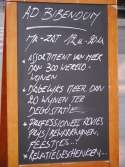 AD BIBENDUM
MA-ZAT 12u-20u
• ASSORTIMENT VAN MEER
DAN 300 WERELD-
WIJNEN
• DAGELIJKS MEER DAN
20 WIJNEN TER
DEGUSTATIE
• PROFESSIONELE ADVIES
FEESTJES...!
• RELATIEGESCHENKEN